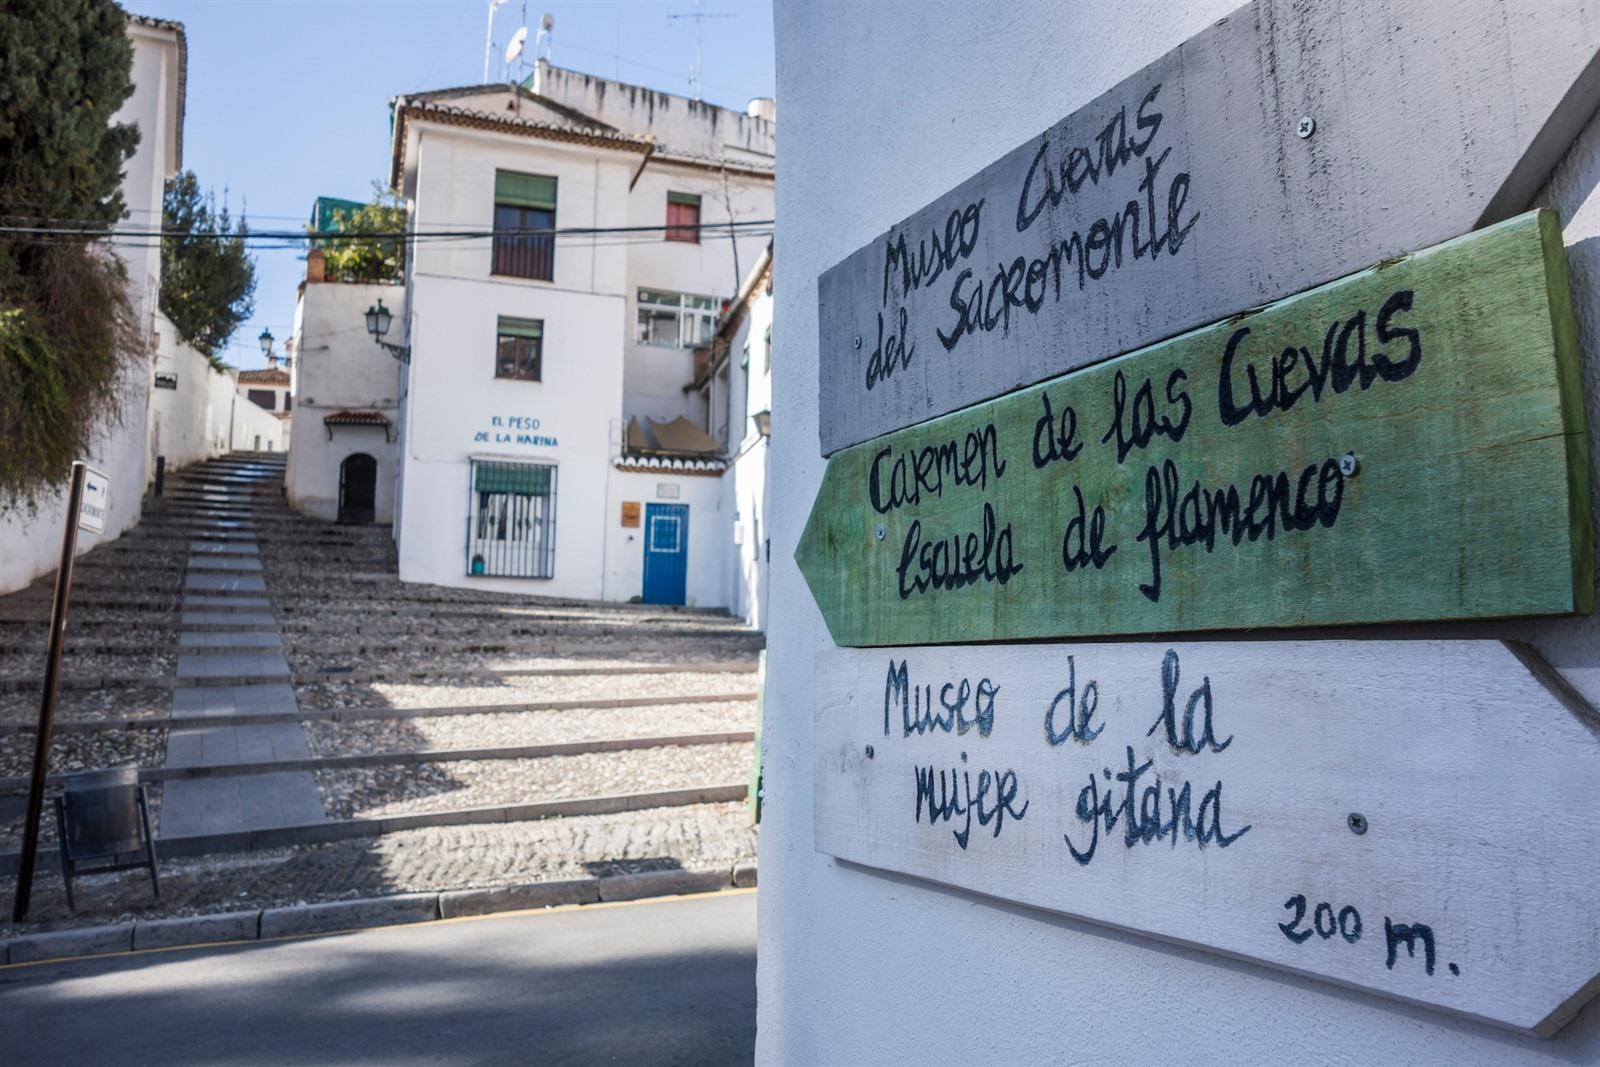 EL PESO
DE LA HARINA
SACROMONTE
Museo Cuevas
del Sacromonte
Carmen de las Cuevas
escuela de flamenco
Museo de la
mujer gitana
200 m.